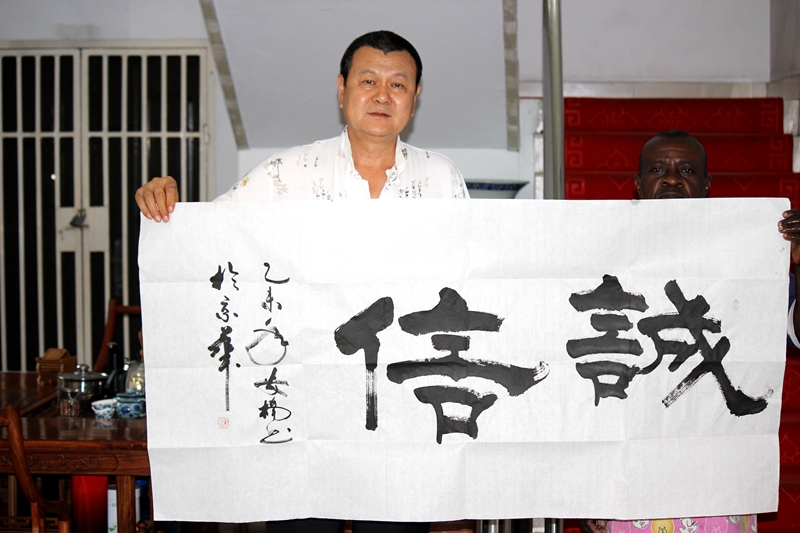 誠信
乙未年楊书
於京華